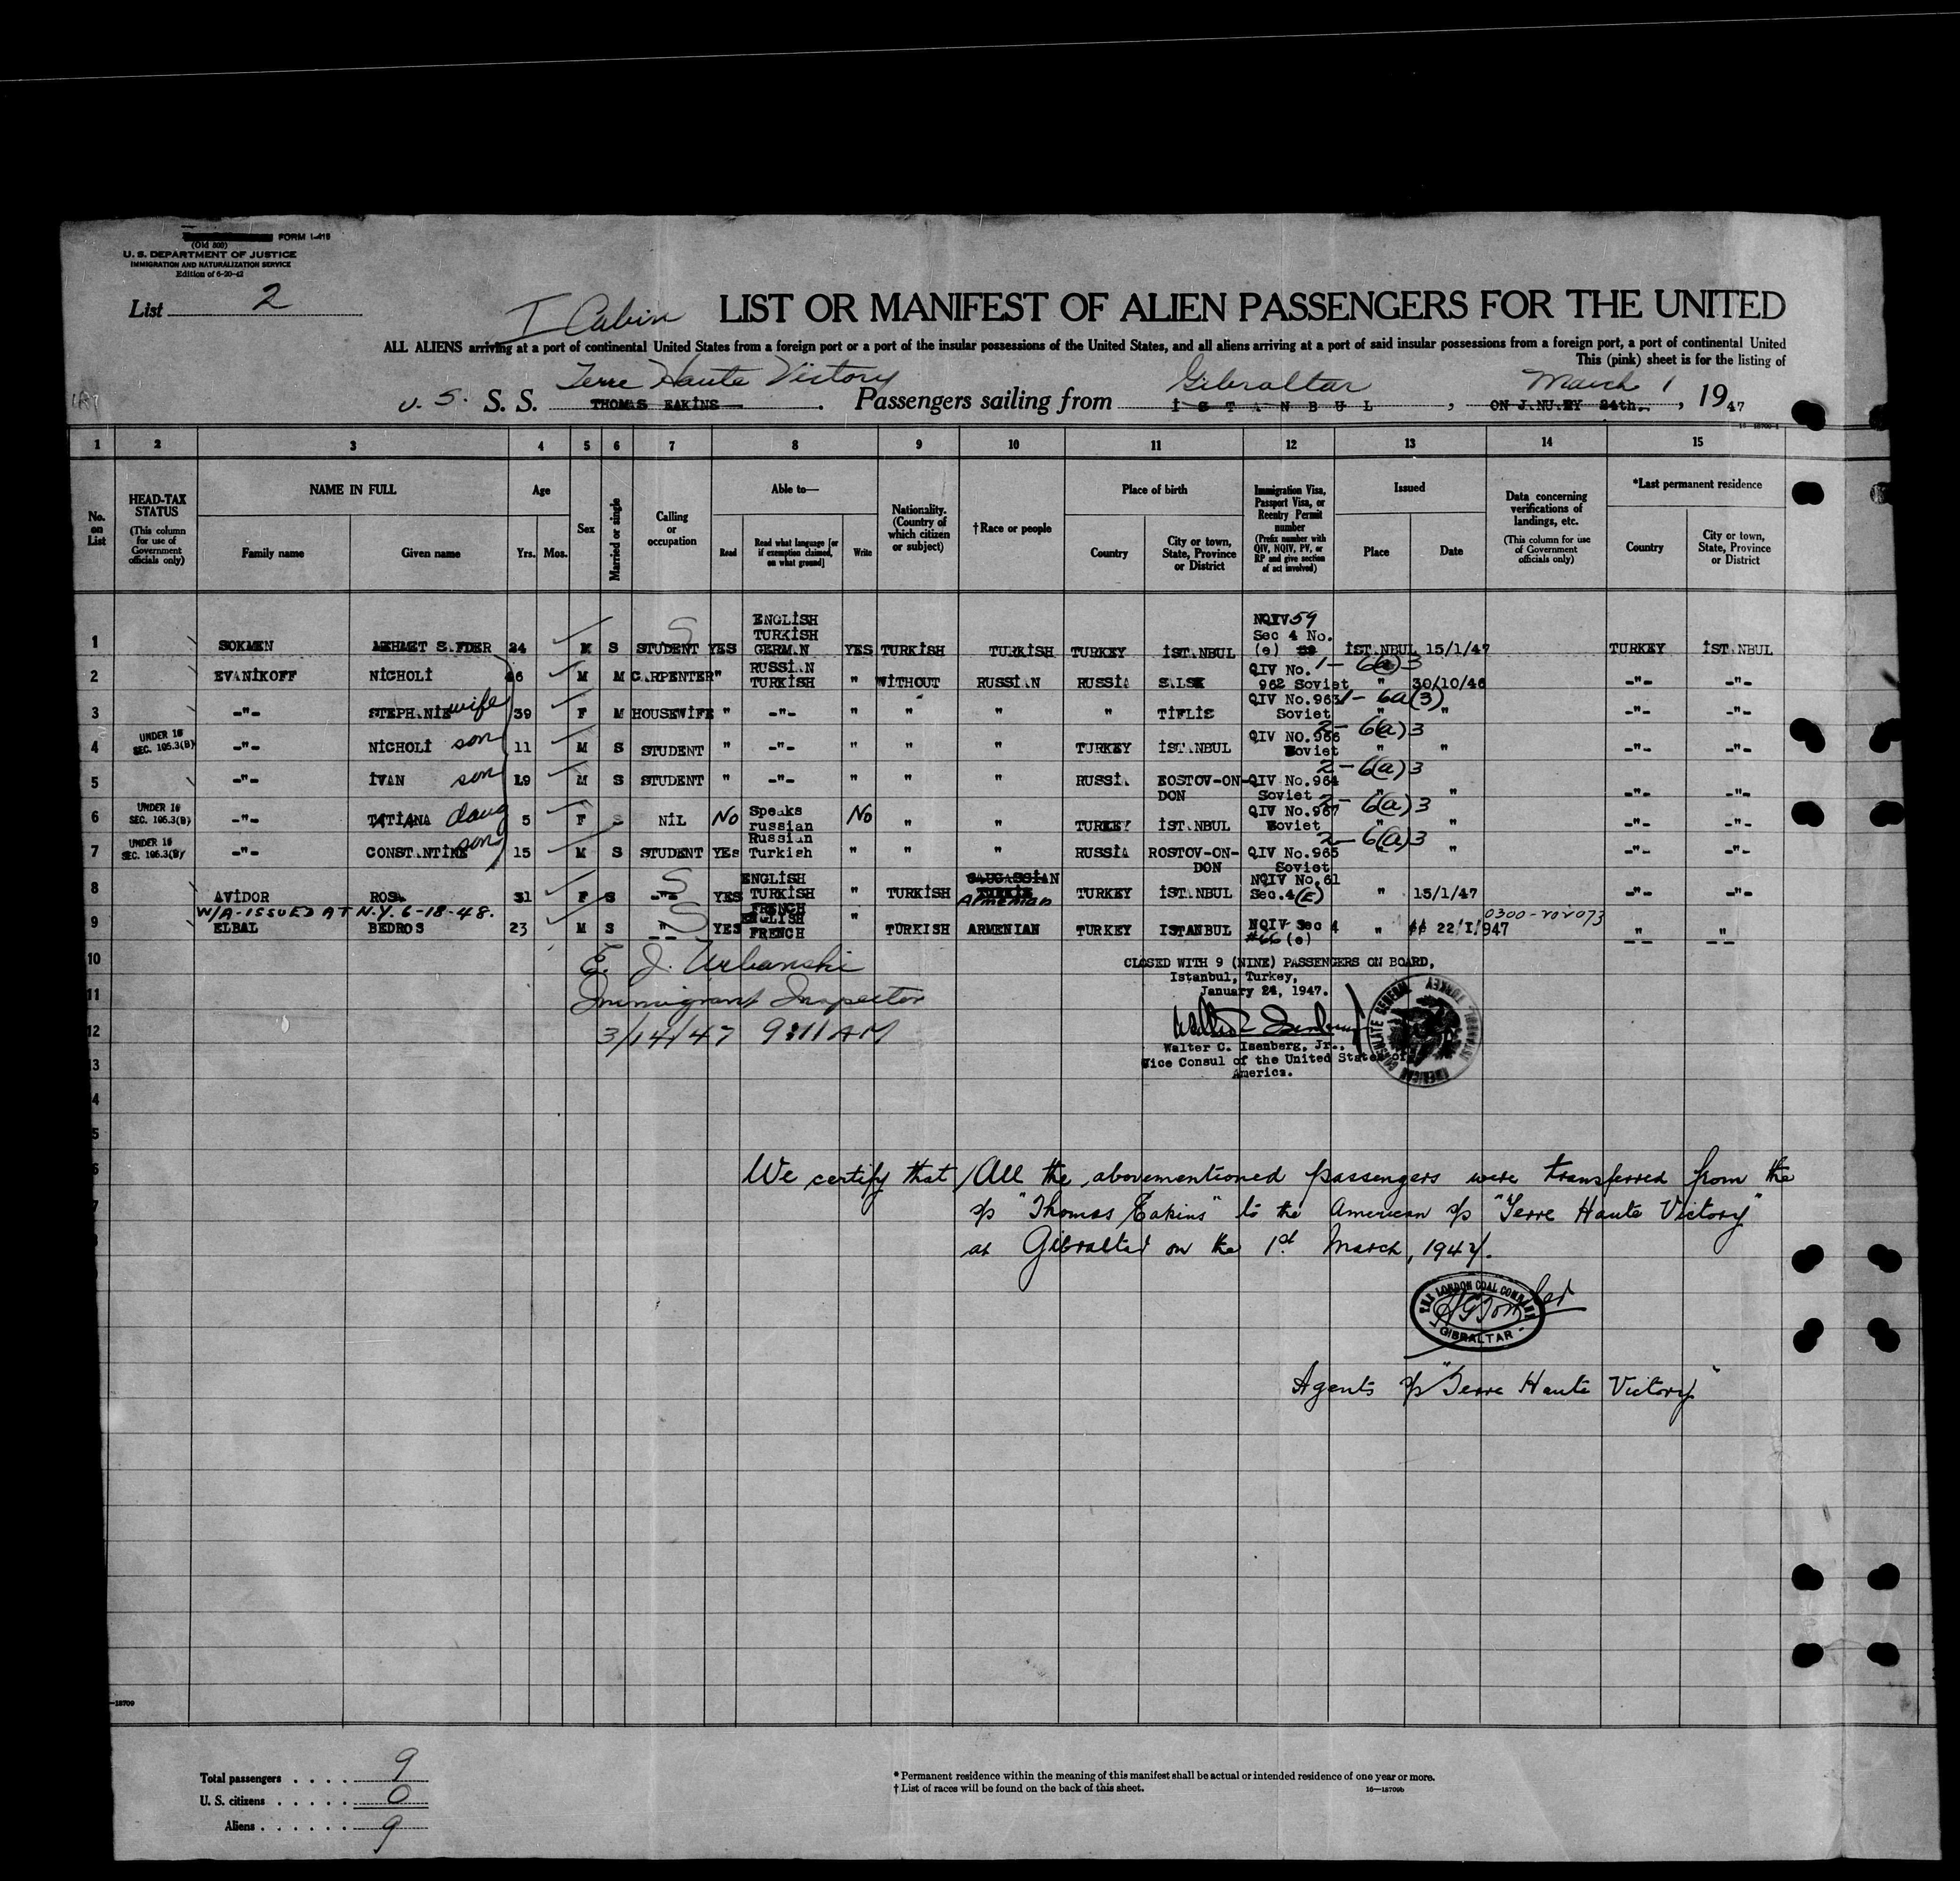 FORM I-418
(Old 500)
U. S. DEPARTMENT OF JUSTICE
IMMIGRATION AND NATURALIZATION SERVICE
Edition of 6-20-42
List 2
I Cabin
LIST OR MANIFEST OF ALIEN PASSENGERS FOR THE UNITED
ALL ALIENS arriving at a port of continental United States from a foreign port or a port of the insular possessions of the United States, and all aliens arriving at a port of said insular possessions from a foreign port, a port of continental United
This (pink) sheet is for the listing of
Terre Haute Victory Gibraltar March 1
U. S. S. S. THOMAS EAKINS. Passengers sailing from İSTANBUL, ON J.NU.RY 24th., 1947
1 2 3 4 5 6 7 8 9 10 11 12 13 14 15
No. on List
HEAD-TAX STATUS
(This column for use of Government officials only)
NAME IN FULL
Family name
Given name
Age
Yrs.
Mos.
Sex
Married or single
Calling or occupation
Able to—
Read
Read what language [or if exemption claimed, on what ground]
Write
Nationality. (Country of which citizen or subject)
†Race or people
Place of birth
Country
City or town, State, Province or District
Immigration Visa, Passport Visa, or Reentry Permit number
(Prefix number with QIV, NQIV, PV, or RP and give section of act involved)
Issued
Place
Date
Data concerning verifications of landings, etc.
(This column for use of Government officials only)
*Last permanent residence
Country
City or town, State, Province or District
1 SOKMEN MEHMET S.FDER 24 M S STUDENT YES ENGLİSH TURKİSH GERM.N YES TURKİSH TURKİSH TURKEY İST.NBUL NQIV 59 Sec 4 No. (e) İST.NBUL 15/1/47 TURKEY İST.NBUL
2 EVANİKOFF NİCHOLİ 46 M M CARPENTER " RUSSİ.N TURKİSH " WİTHOUT RUSSİ.N RUSSİA SALSK QIV No. 962 Soviet 1-6(a)3 " 30/10/46 -"- -"-
3 -"- STEPH.NİE wife 39 F M HOUSEWİFE " -"- " " " " TİFLİS QIV No.963 Soviet 1-6a(3) " " -"- -"-
4 UNDER 16 SEC. 105.3(B) -"- NİCHOLİ son 11 M S STUDENT " -"- " " " TURKEY İST.NBUL QIV NO.966 Soviet 2-6(a)3 " " -"- -"-
5 -"- İVAN son 19 M S STUDENT " -"- " " " RUSSİA ROSTOV-ON-DON QIV No.964 Soviet 2-6(a)3 " " -"- -"-
6 UNDER 16 SEC. 105.3(B) -"- TATİANA daug 5 F S NİL No Speaks russian No " " TURKEY İST.NBUL QIV No.967 Soviet 2-6(a)3 " " -"- -"-
7 UNDER 16 SEC. 105.3(B) -"- CONST.NTİNE son 15 M S STUDENT YEs Russian Turkish " " " RUSSİA ROSTOV-ON-DON QIV No.965 Soviet 2-6(a)3 " " -"- -"-
8 AVİDOR ROSA 31 F S -"- YES ENGLİSH TURKİSH FRENCH " TURKİSH CAUCASSIAN TURKİSH Armenian TURKEY İST.NBUL NQIV No.61 Sec.4(E) " 15/1/47 -"- -"-
W/A-ISSUED AT N.Y. 6-18-48.
9 ELBAL BEDROS 23 M S -"- YES ENGLISH FRENCH " TURKISH ARMENIAN TURKEY ISTANBUL NQIV Sec 4 #66 (e) " 22/I/947 0300-202073 " "
10
11
12
E. J. Urbanski
Immigrant Inspector
3/14/47 9:11 AM
CLOSED WITH 9 (NINE) PASSENGERS ON BOARD,
Istanbul, Turkey,
January 24, 1947.
Walter C. Isenberg, Jr.,
Vice Consul of the United States of
America.
AMERICAN CONSULATE GENERAL ISTANBUL, TURKEY
We certify that All the abovementioned passengers were transferred from the
s/s "Thomas Eakins" to the American s/s "Terre Haute Victory"
at Gibraltar on the 1st March, 1947.
THE LONDON COAL COMPANY
- GIBRALTAR -
Agents s/s "Terre Haute Victory"
Total passengers . . . . 9
U. S. citizens . . . . . 0
Aliens . . . . . . 9
* Permanent residence within the meaning of this manifest shall be actual or intended residence of one year or more.
† List of races will be found on the back of this sheet.
16—18709b